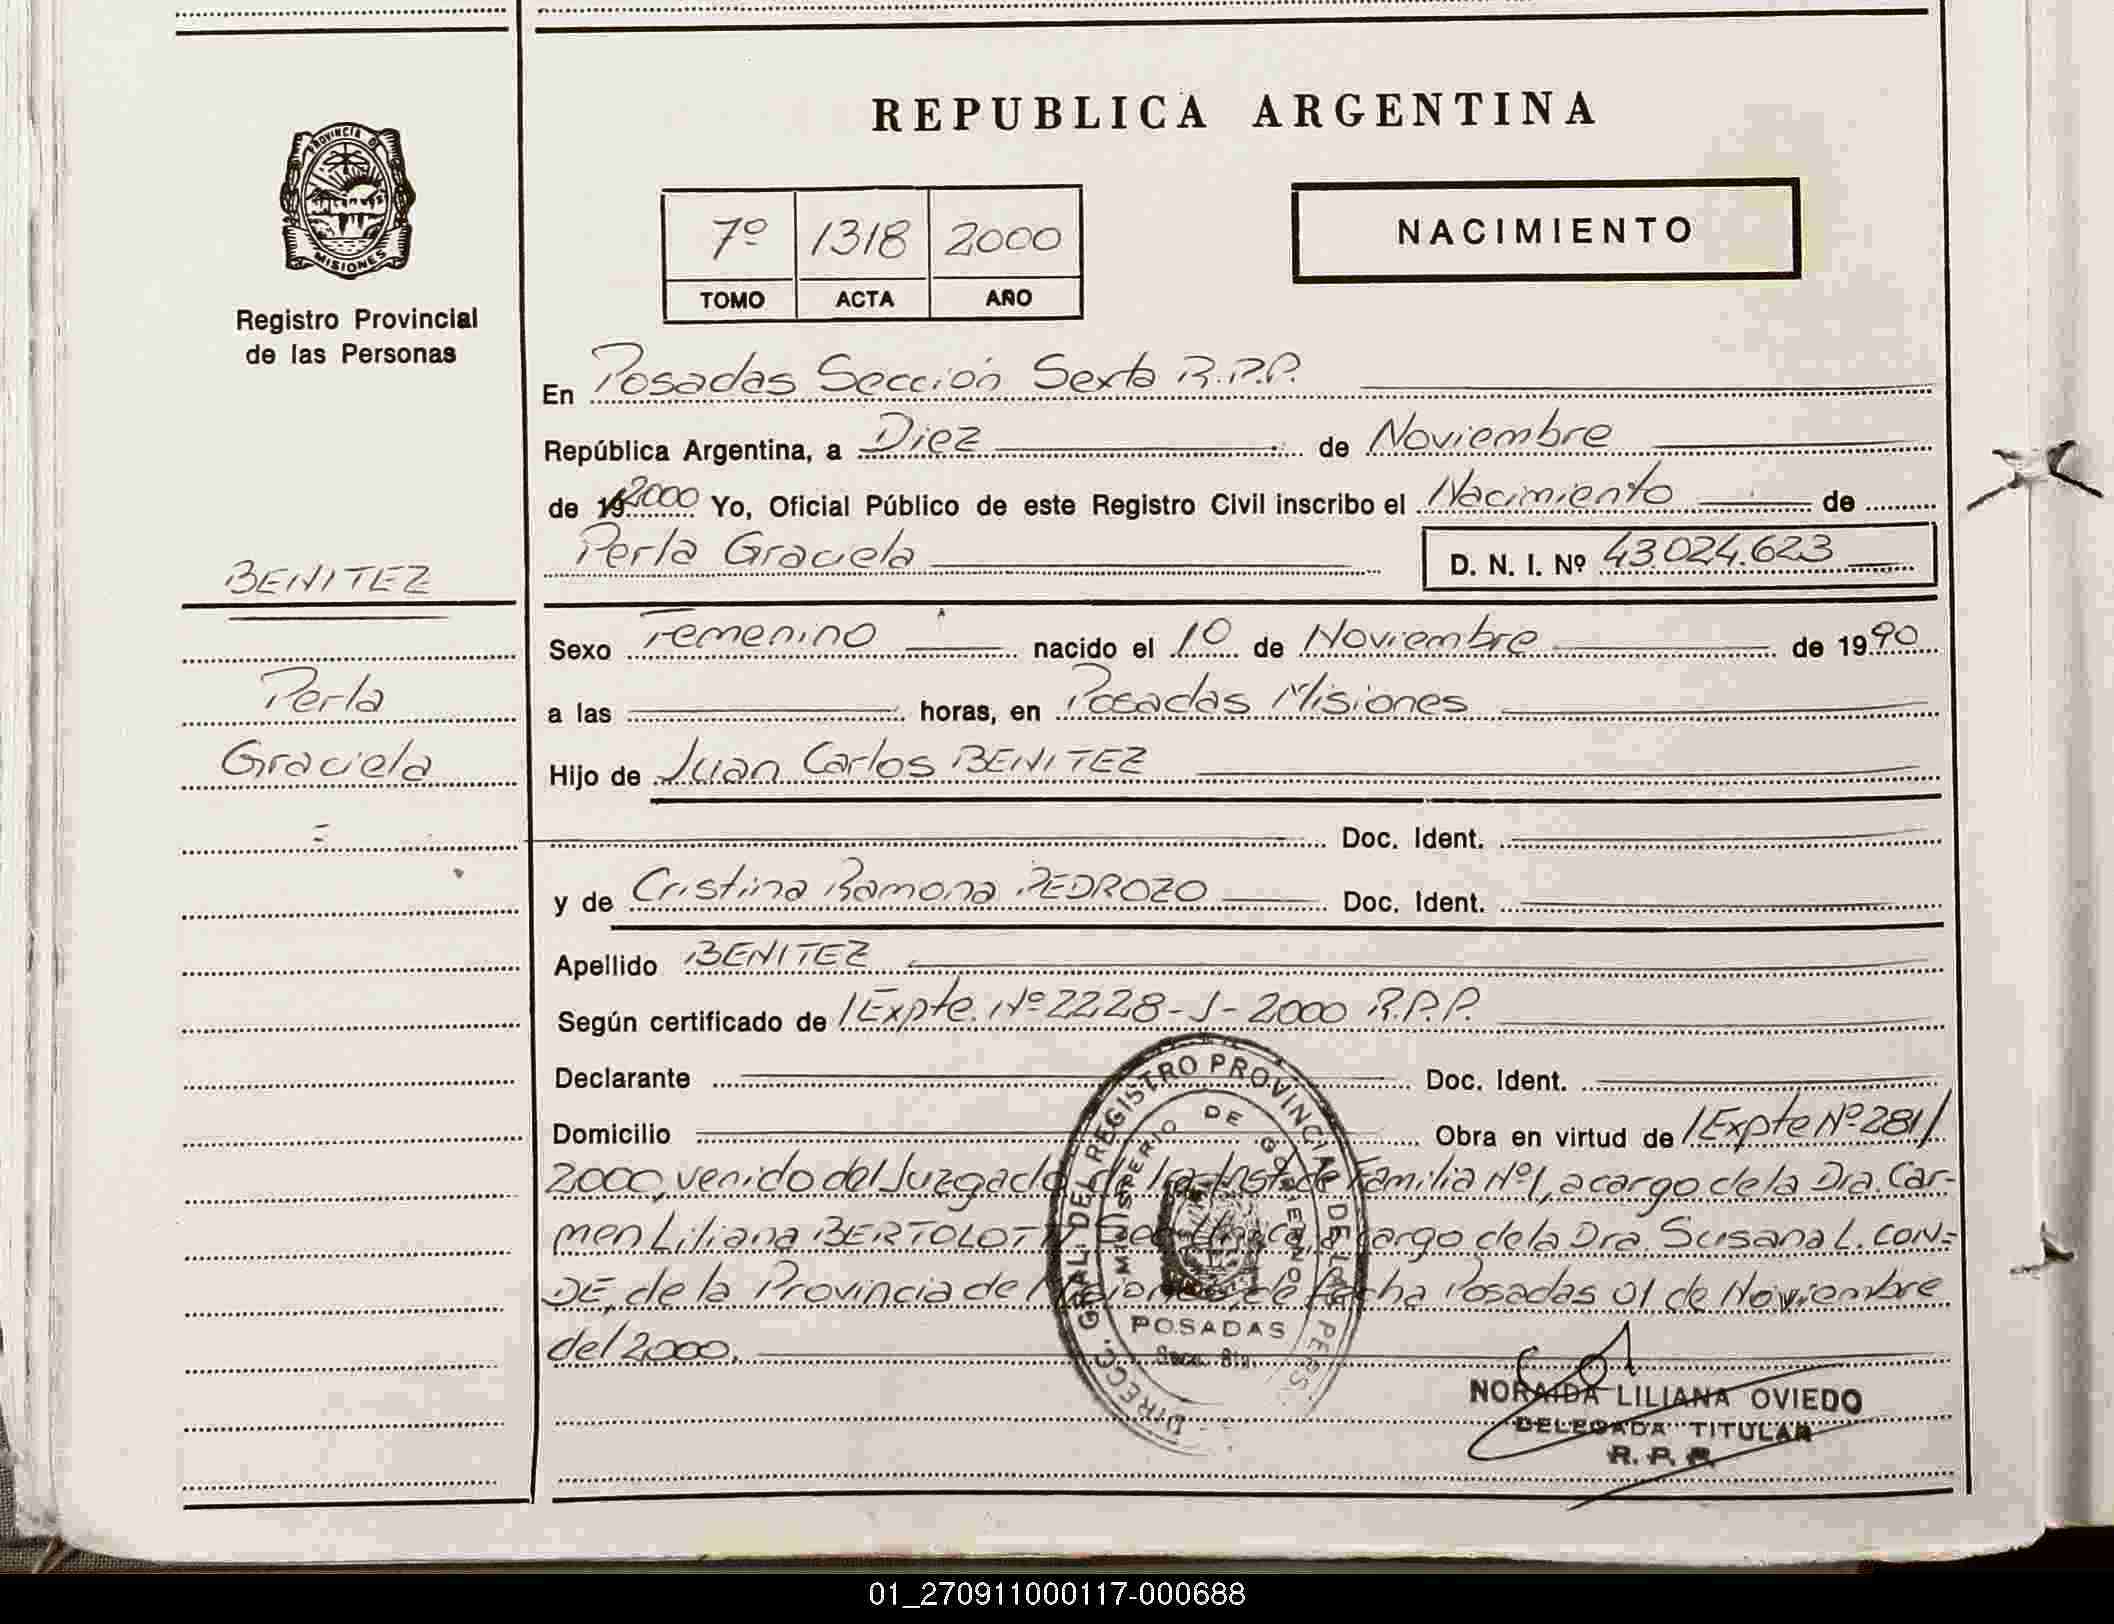 REPUBLICA ARGENTINA
PROVINCIA DE
MISIONES
Registro Provincial
de las Personas
7º 1318 2000
TOMO ACTA AÑO
NACIMIENTO
En Posadas Sección Sexta R.P.P.
República Argentina, a Diez de Noviembre
de 19 2000 Yo, Oficial Público de este Registro Civil inscribo el Nacimiento de
Perla Graciela D. N. I. Nº 43.024.623
BENITEZ
Perla
Graciela
Sexo Femenino nacido el 10 de Noviembre de 1990
a las horas, en Posadas Misiones
Hijo de Juan Carlos BENITEZ
Doc. Ident.
y de Cristina Ramona PEDROZO Doc. Ident.
Apellido BENITEZ
Según certificado de Expte. Nº 2228-J-2000 R.P.P.
Declarante Doc. Ident.
Domicilio Obra en virtud de Expte Nº 281/
2000, venido del Juzgado de 1ra Inst de Familia Nº1, a cargo de la Dra. Car-
men Liliana BERTOLOTTI Sec Unica, a cargo de la Dra. Susana L. CON-
DE, de la Provincia de Misiones, de fecha Posadas 01 de Noviembre
del 2000.
DIRECC. GRAL. DEL REGISTRO PROVINCIAL DE LAS PERS
MINISTERIO DE GOBIERNO
POSADAS
NORAIDA LILIANA OVIEDO
DELEGADA TITULAR
R. P. P.
01_270911000117-000688